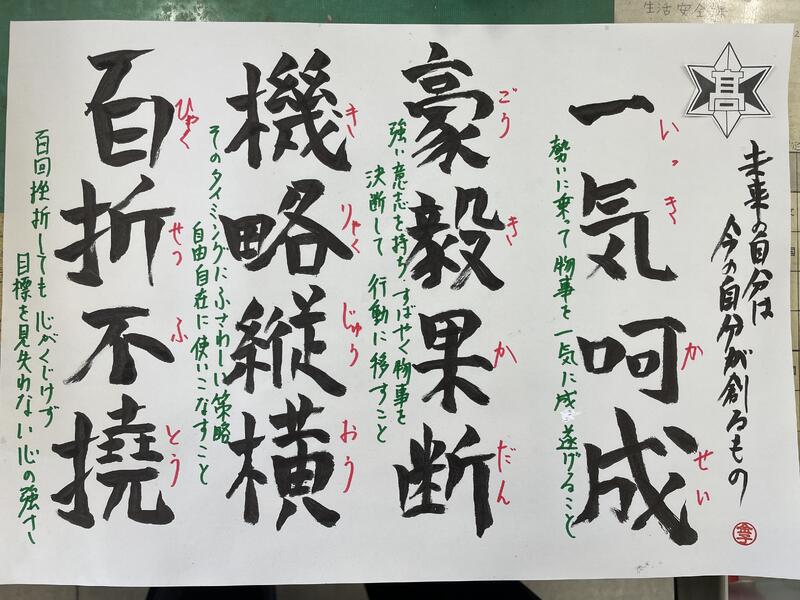 生活安全課
高
未来の自分は
今の自分が創るもの
いっき か せい
一気呵成
勢いに乗って 物事を 一気に成し遂げること
ごう き か だん
豪毅果断
強い意志を持ち、すばやく物事を
決断して 行動に移すこと
き りゃく じゅう おう
機略縦横
そのタイミングにふさわしい策略
自由自在に使いこなすこと
ひゃく せつ ふ とう
百折不撓
百回挫折しても 心がくじけず
目標を見失わない心の強さ